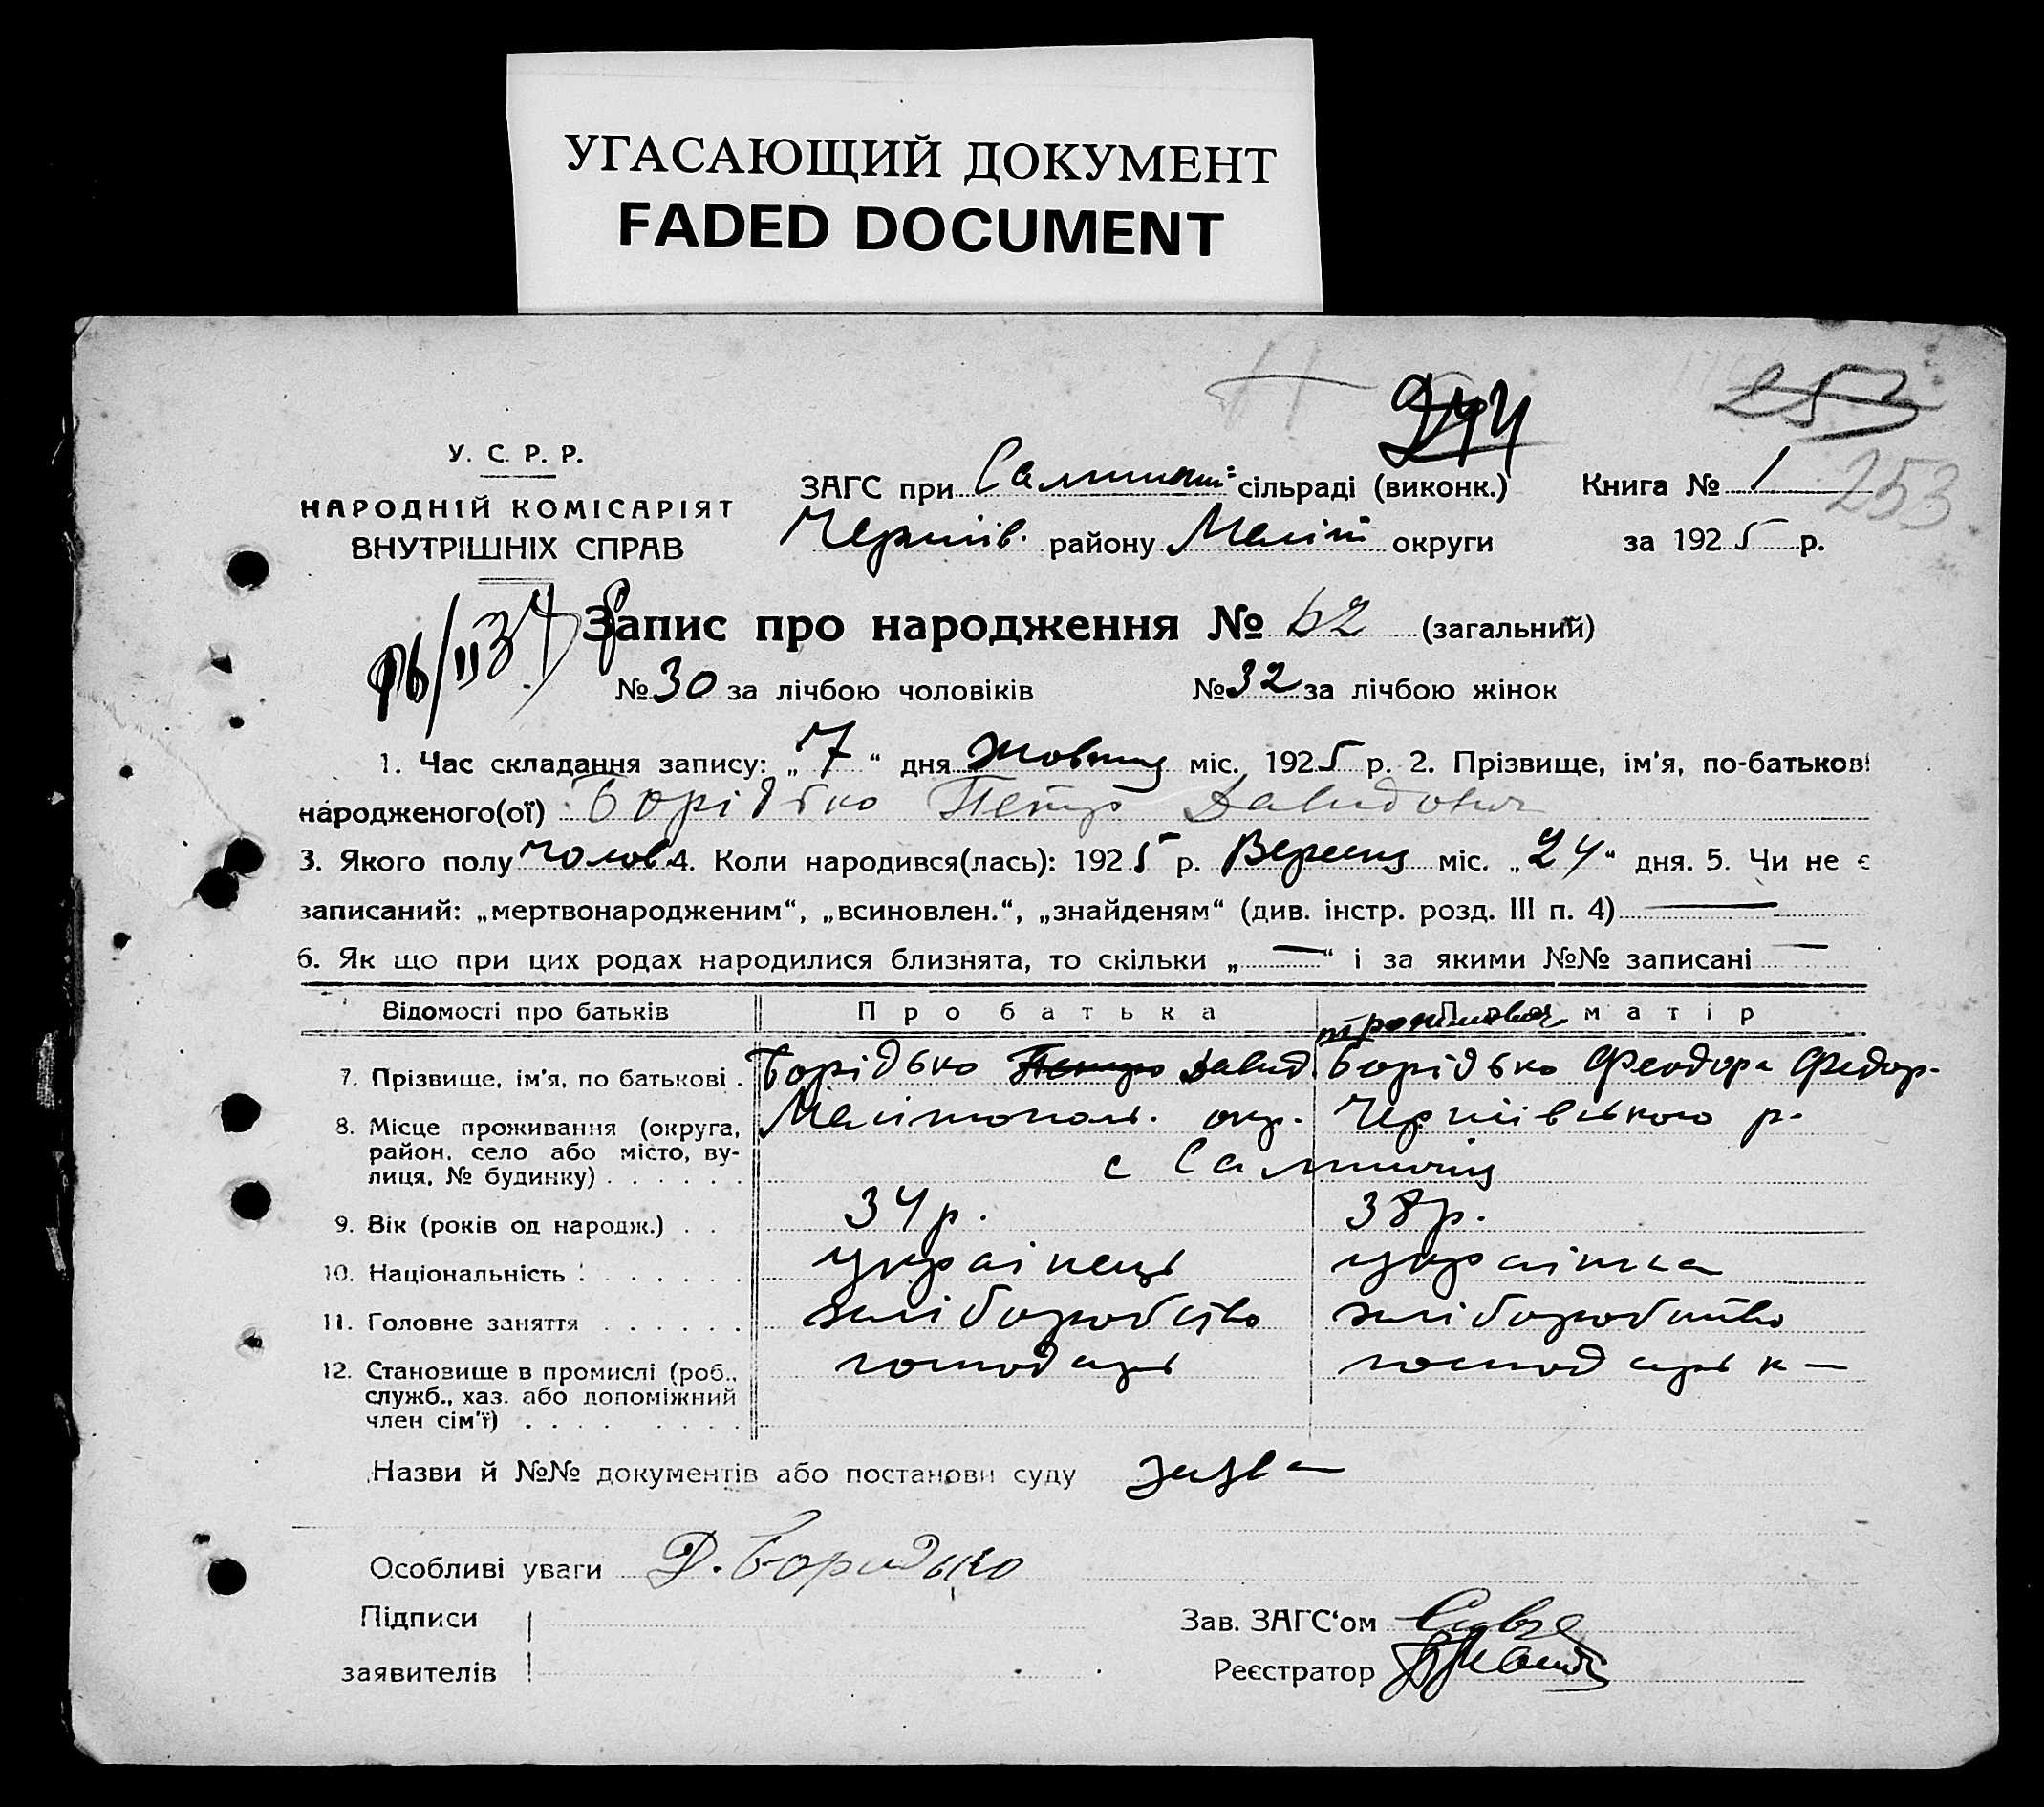 УГАСАЮЩИЙ ДОКУМЕНТ
FADED DOCUMENT
253
244
253
У. С. Р. Р.
НАРОДНІЙ КОМІСАРІЯТ
ВНУТРІШНІХ СПРАВ
ЗАГС при сільраді (виконк.) Книга № 1
Черніів. району Меліт округи за 1925 р.
Запис про народження № 62 (загальний)
№ 30 за лічбою чоловіків № 32 за лічбою жінок
1. Час складання запису: „7“ дня Жовтня міс. 1925 р. 2. Прізвище, ім'я, по-батькові
народженого(ої) Борідько Петро Давидович
3. Якого полу Чолов. 4. Коли народився(лась): 1925 р. Вересня міс. „24“ дня. 5. Чи не є
записаний: „мертвонародженим“, „всиновлен.“, „знайденям“ (див. інстр. розд. III п. 4) —
6. Як що при цих родах народилися близнята, то скільки „—“ і за якими №№ записані —
Відомості про батьків Про батька Про матір
7. Прізвище, ім'я, по батькові . Борідько Петро Давид. Борідько Феодора Федор.
8. Місце проживання (округа, Мелітополь. окр. Чернiiвського р-
район, село або місто, ву-
лиця, № будинку) . . . . . . с
9. Вік (років од народж.) . . 34 р. 38 р.
10. Національність . . . . . . . українець українка
11. Головне заняття . . . . . . хліборобство хліборобство
12. Становище в промислі (роб., господарь господарька
служб., хаз. або допоміжний
член сім'ї) . . . . . . . .
Назви й №№ документів або постанови суду заява
Особливі уваги Д. Боридько
Підписи
заявителів
Зав. ЗАГС'ом
Реєстратор